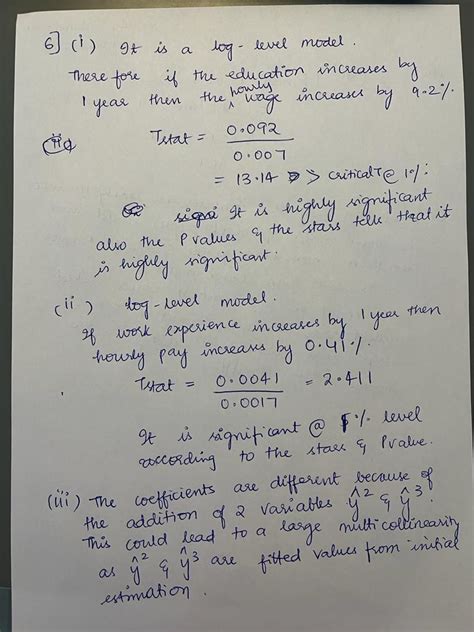 6] (i) It is a log-level model.
Therefore if the education increases by
1 year then the hourly wage increases by 9.2%.
Tstat = 0.092
0.007
= 13.14 > criticalT @ 1%:
It is highly significant
also the P values & the stars tells that it
is highly significant.
(ii) log-level model.
If work experience increases by 1 year then
hourly pay increases by 0.41%.
Tstat = 0.0041 = 2.411
0.0017
It is significant @ % level
according to the stars & Pvalue.
(iii) The coefficients are different because of
the addition of 2 variables ŷ² & ŷ³.
This could lead to a large multicollinearity
as ŷ² & ŷ³ are fitted values from initial
estimation.